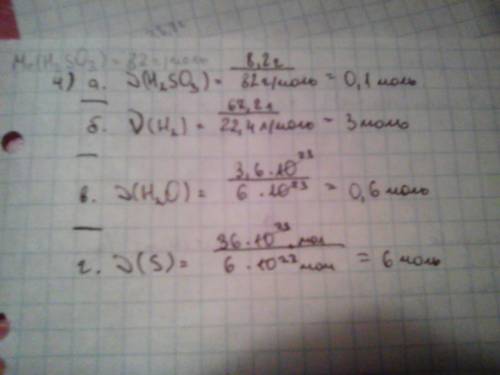 Mr(H₂SO₃) = 82 г/моль
4) а. ν(H₂SO₃) = 8,2г / 82 г/моль = 0,1 моль
б. ν(H₂) = 63,2г / 22,4 л/моль = 3 моль
в. ν(H₂O) = 3,6·10²³ / 6·10²³ = 0,6 моль
г. ν(S) = 36·10²³ мол / 6·10²³ мол = 6 моль